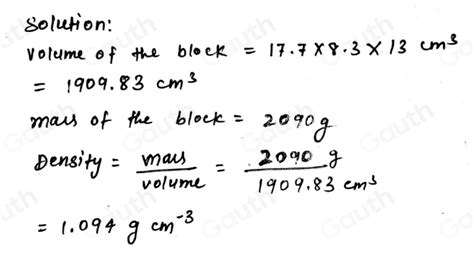 Solution:
Volume of the block = 17.7 × 8.3 × 13 cm³
= 1909.83 cm³
mass of the block = 2090 g
Density = mass / volume = 2090 g / 1909.83 cm³
= 1.094 g cm⁻³
Gauth